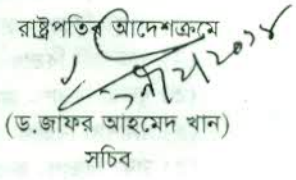 রাষ্ট্রপতির আদেশক্রমে
(ড.জাফর আহমেদ খান)
সচিব